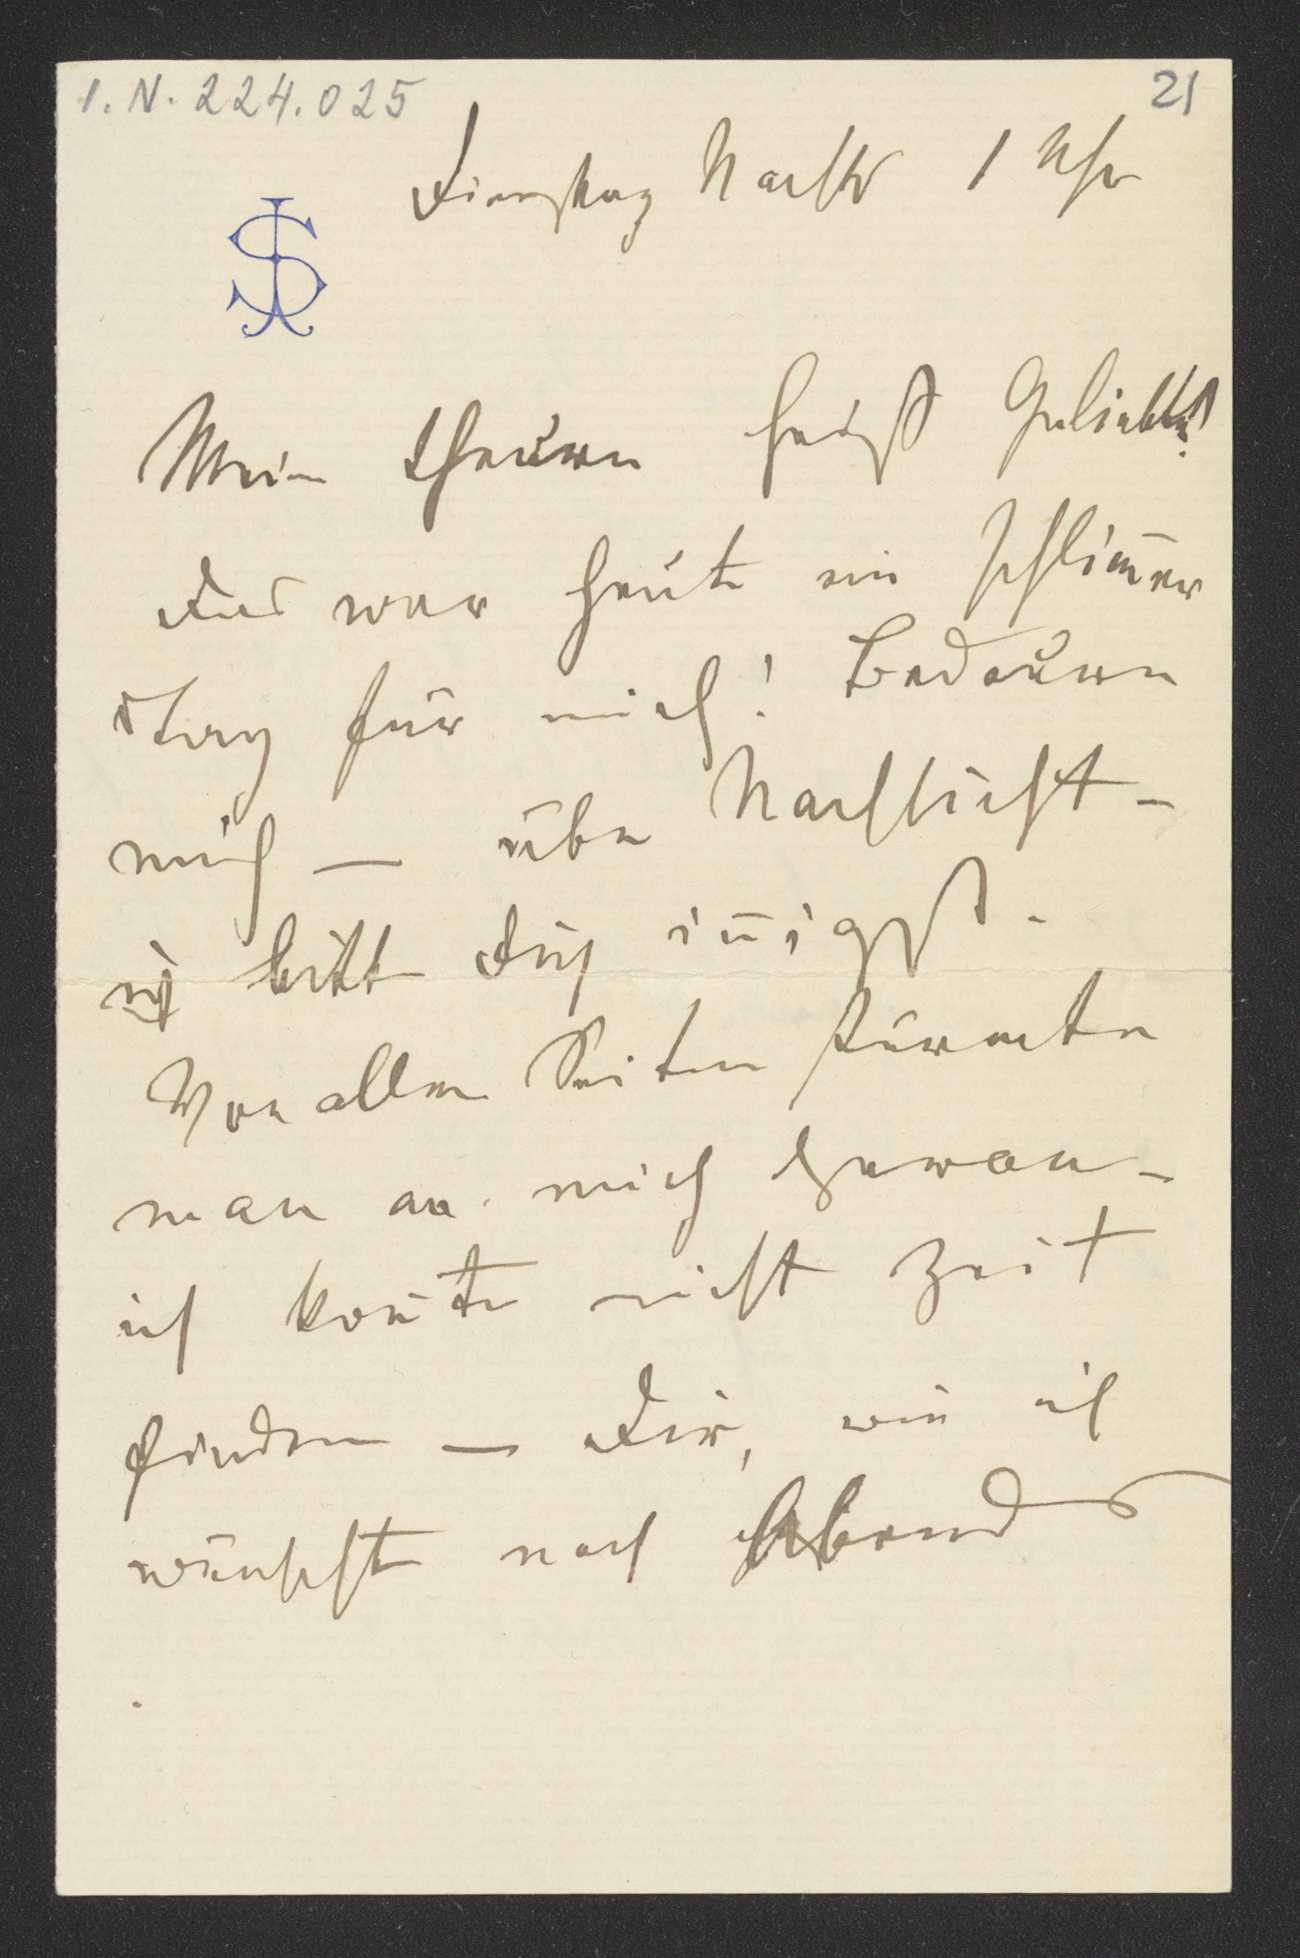 I. N. 224.025
21
Dienstag Nachts 1 Uhr
JS
Mein theuern heißt Geliebte!
Das war heute ein schlim̄er
Tag für mich! Bedauern
mich — übe Nachsicht –
ich bitte Dich in̄igst.
Von allen Seiten stürmte
man an mich heran –
ich kon̄te nicht Zeit
finden — Dir, wie ich
wünschte noch Abends